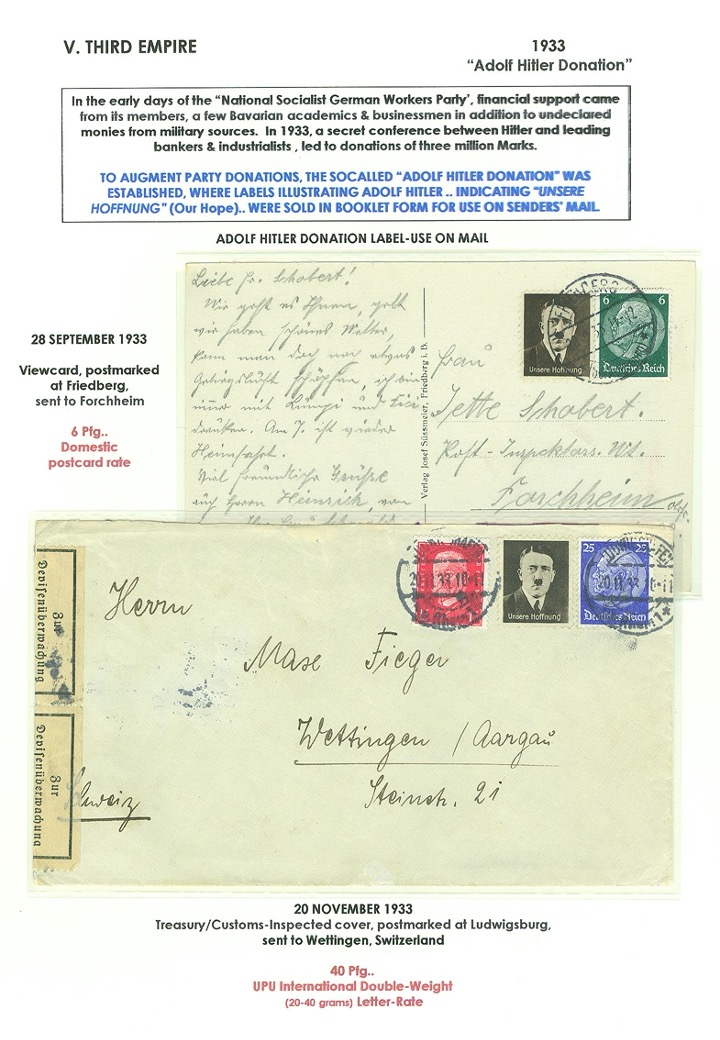 V. THIRD EMPIRE
1933
“Adolf Hitler Donation”
In the early days of the “National Socialist German Workers Party’, financial support came
from its members, a few Bavarian academics & businessmen in addition to undeclared
monies from military sources. In 1933, a secret conference between Hitler and leading
bankers & industrialists , led to donations of three million Marks.
TO AUGMENT PARTY DONATIONS, THE SOCALLED “ADOLF HITLER DONATION” WAS
ESTABLISHED, WHERE LABELS ILLUSTRATING ADOLF HITLER .. INDICATING “UNSERE
HOFFNUNG” (Our Hope).. WERE SOLD IN BOOKLET FORM FOR USE ON SENDERS’ MAIL.
ADOLF HITLER DONATION LABEL-USE ON MAIL
28 SEPTEMBER 1933
Viewcard, postmarked
at Friedberg,
sent to Forchheim
6 Pfg..
Domestic
postcard rate
Liebe Fr. Schobert!
Wir geht es Ihnen, geht
wir haben schönes Wetter,
kann man doch noch etwas
Gebirgsluft schöpfen, ich bin
immer mit
Am 7. ist wieder
Heimfahrt.
Viel freundliche Grüße
auch Herrn Heinrich, von
Verlag Josef Süssmeier, Friedberg i. B.
Unsere Hoffnung
6 6
Deutsches Reich
Frau
Jette Schobert.
Post - Inspektors. Wt.
Forchheim
Zur
Devisenüberwachung
Zur
Devisenüberwachung
20.11.33.10-11
Unsere Hoffnung
25 25
Deutsches Reich
20.11.33.10-11
Herrn
Max Fieger
Wettingen / Aargau
Steinstr. 21
Schweiz
20 NOVEMBER 1933
Treasury/Customs-Inspected cover, postmarked at Ludwigsburg,
sent to Wettingen, Switzerland
40 Pfg..
UPU International Double-Weight
(20-40 grams) Letter-Rate